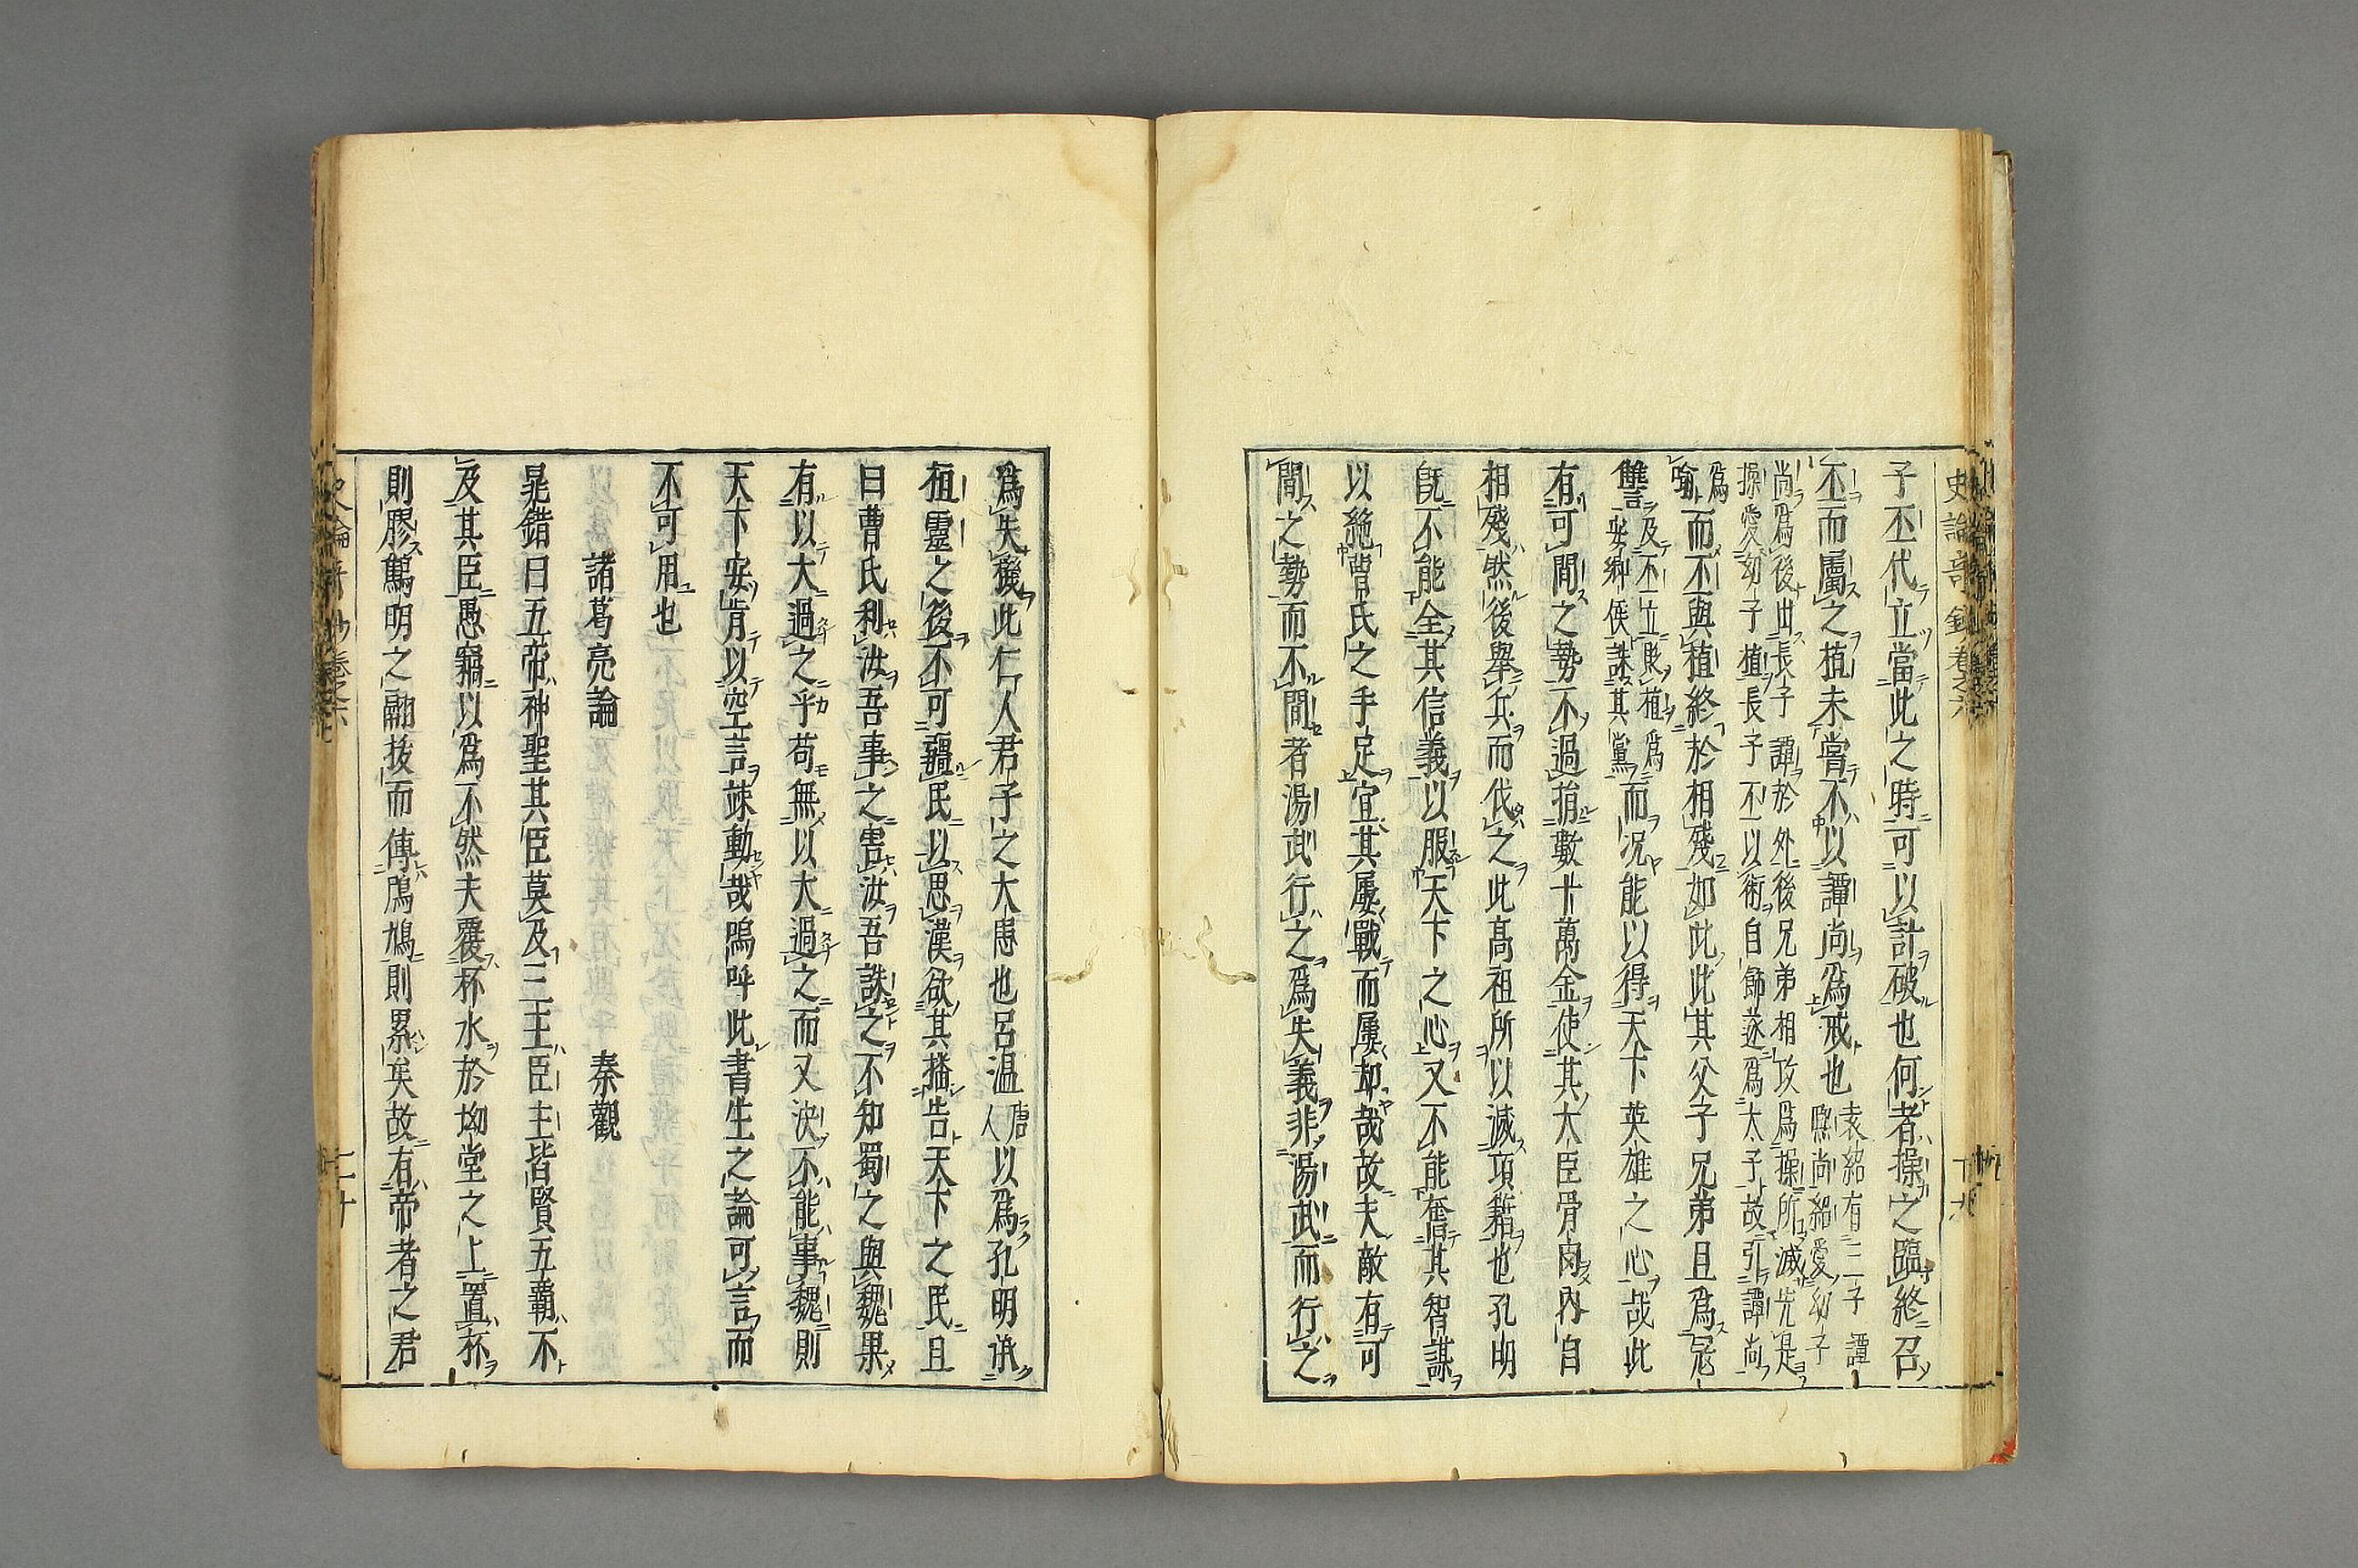 子丕代立當此之時可以計破也何者操之臨終召
丕而屬之植未嘗不以譚尚爲戒也袁紹有三子譚
熈尚紹愛幼子
尚爲後出長子譚於外後兄弟相攻爲操所滅先是
操愛幼子植長子不以術自飾遂爲太子故引譚尚
爲
喻而丕與植終於相殘如此此其父子兄弟且爲冦
讐及丕立貶植爲
安鄉侯誅其黨而況能以得天下英雄之心哉此
有可間之勢不過捐數十萬金使其大臣骨肉內自
相殘然後舉兵而伐之此高祖所以滅項籍也孔明
既不能全其信義以服天下之心又不能奮其智謀
以絶曹氏之手足宜其屢戰而屢却哉故夫敵有可
間之勢而不間者湯武行之爲失義非湯武而行之
爲失機此仁人君子之大患也呂温唐
人以爲孔明承
桓靈之後不可彊民以思漢欲其播告天下之民且
曰曹氏利汝吾事之害汝吾誅之不知蜀之與魏果
有以大過之乎苟無以大過之而又决不能事魏則
天下安肯以空言竦動哉嗚呼此書生之論可言而
不可用也
諸葛亮論　秦觀
晁錯曰五帝神聖其臣莫及三王臣主皆賢五霸不
及其臣愚竊以爲不然夫覆杯水於坳堂之上置杯
則膠焉明之融技而傅鳥鳩則累矣故有帝者之君
史論奇鈔卷之六
十九
二十